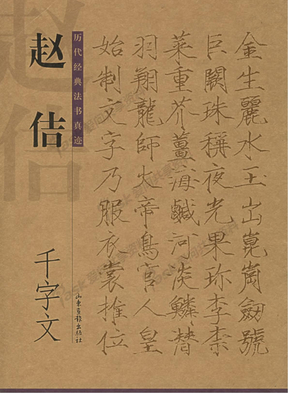 金生麗水玉出崑崗劍號
巨闕珠稱夜光果珍李柰
菜重芥薑海鹹河淡鱗潛
羽翔龍師火帝鳥官人皇
始制文字乃服衣裳推位
历代经典法书真迹
赵佶
千字文
赵佶